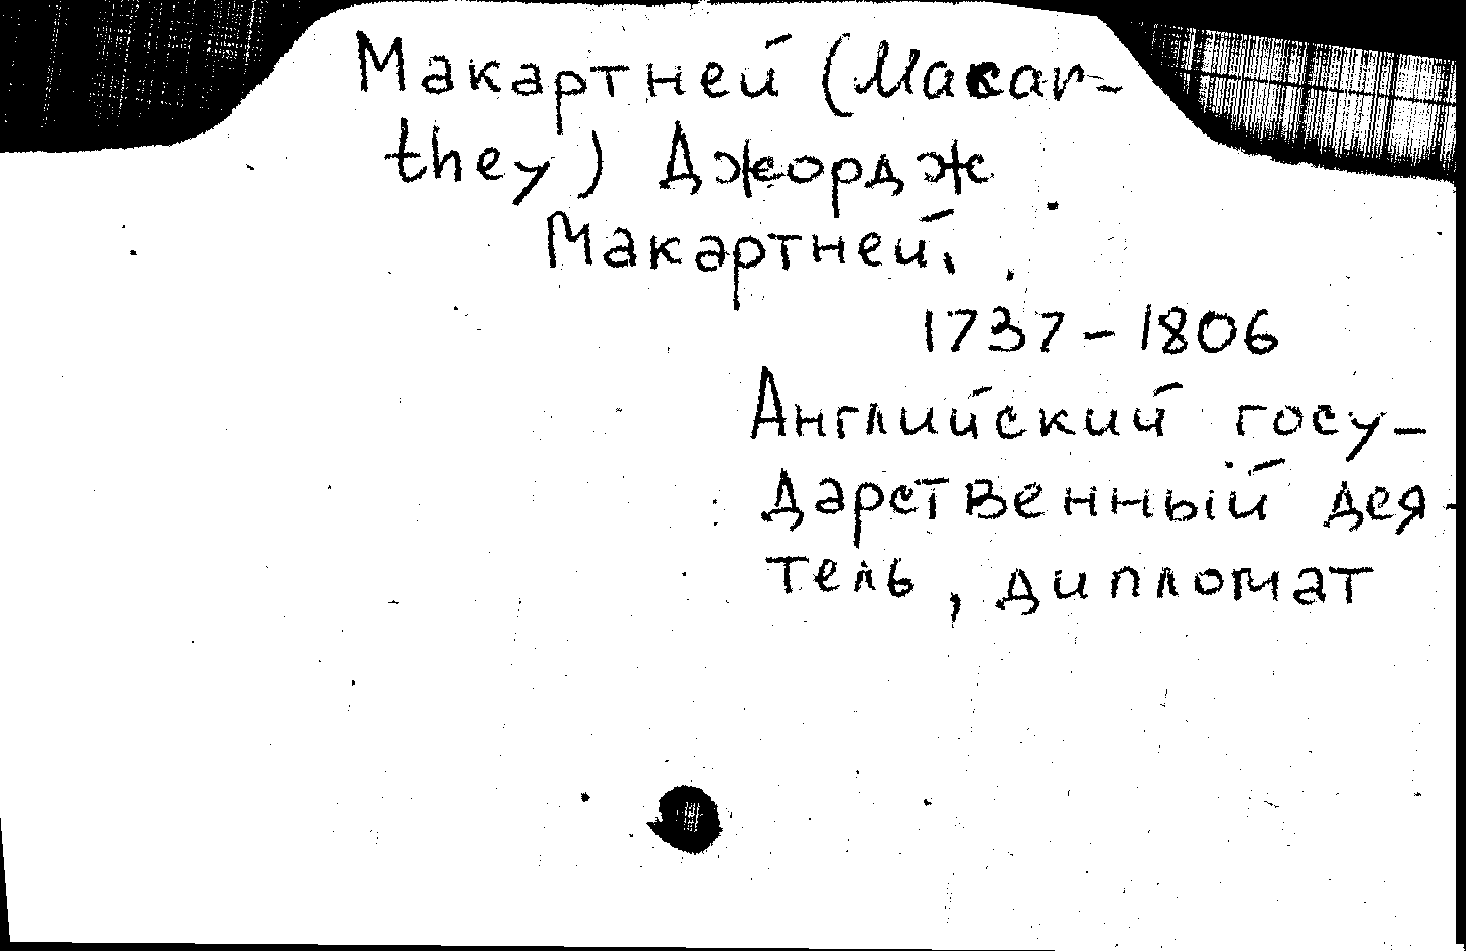 Макартней (Macar-
they) Джордж
Макартней.
1737-1806
Английский госу-
дарственный дея-
тель, дипломат